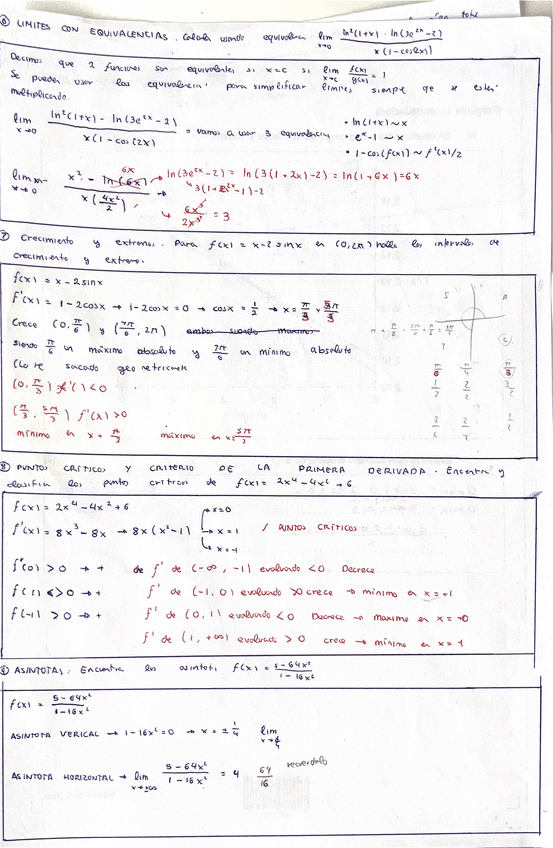 ⑥ LIMITES CON EQUIVALENCIAS. Calcula usando equivalencia lim x→0 ln²(1+x) · ln(3e^2x - 2) / x(1-cos(2x))
Decimos que 2 funciones son equivalentes si x=c si lim x→c f(x)/g(x) = 1
Se pueden usar las equivalencias para simplificar límites, siempre que se esté
multiplicando.
lim x→0 ln²(1+x) - ln(3e^2x - 2) / x(1-cos(2x)) = vamos a usar 3 equivalencias
• ln(1+x) ~ x
• e^x - 1 ~ x
• 1-cos(f(x)) ~ f²(x)/2
lim x→0 x² - ln(6x) 6x / x(4x²/2) → ln(3e^2x - 2) = ln(3(1+2x)-2) = ln(1+6x) = 6x
↳ 6x³/2x³ = 3
⑦ Crecimiento y extremos. Para f(x) = x-2 sinx en (0,2π) halla los intervalos de
crecimiento y extremos.
f(x) = x - 2sinx
f'(x) = 1 - 2cosx → 1-2cosx = 0 → cosx = 1/2 → x = π/3 5π/3
Crece (0, π/6) y (7π/6, 2π) ambos siendo maximos
siendo π/6 un máximo absoluto y 7π/6 un mínimo absoluto
(lo he sacado geometricamente
(0, π/3) f'(x) < 0
(π/3, 5π/3) f'(x) > 0
mínimo en x = π/3 máximo en x = 5π/3
⑧ PUNTOS CRÍTICOS Y CRITERIO DE LA PRIMERA DERIVADA. Encuentra y
clasifica los puntos críticos de f(x) = 2x⁴ - 4x² + 6
f(x) = 2x⁴ - 4x² + 6
f'(x) = 8x³ - 8x → 8x(x²-1) x=0 x=1 x=-1 / PUNTOS CRÍTICOS
f'(0) > 0 → + f' de (-∞, -1) evaluando < 0. Decrece
f(1) > 0 → + f' de (-1, 0) evaluando > 0 crece → mínimo en x = -1
f(-1) > 0 → + f' de (0, 1) evaluando < 0 Decrece → maximo en x = 0
f' de (1, +∞) evaluando > 0 crece → mínimo en x = 1
ASINTOTAS. Encuentra las asintotas f(x) = 5-64x² / 1-16x²
f(x) = 5-64x² / 1-16x²
ASINTOTA VERICAL → 1-16x² = 0 → x = ± 1/4 lim
ASINTOTA HORIZONTAL → lim x→±∞ 5-64x² / 1-16x² = 4 64/16 recuerdalo